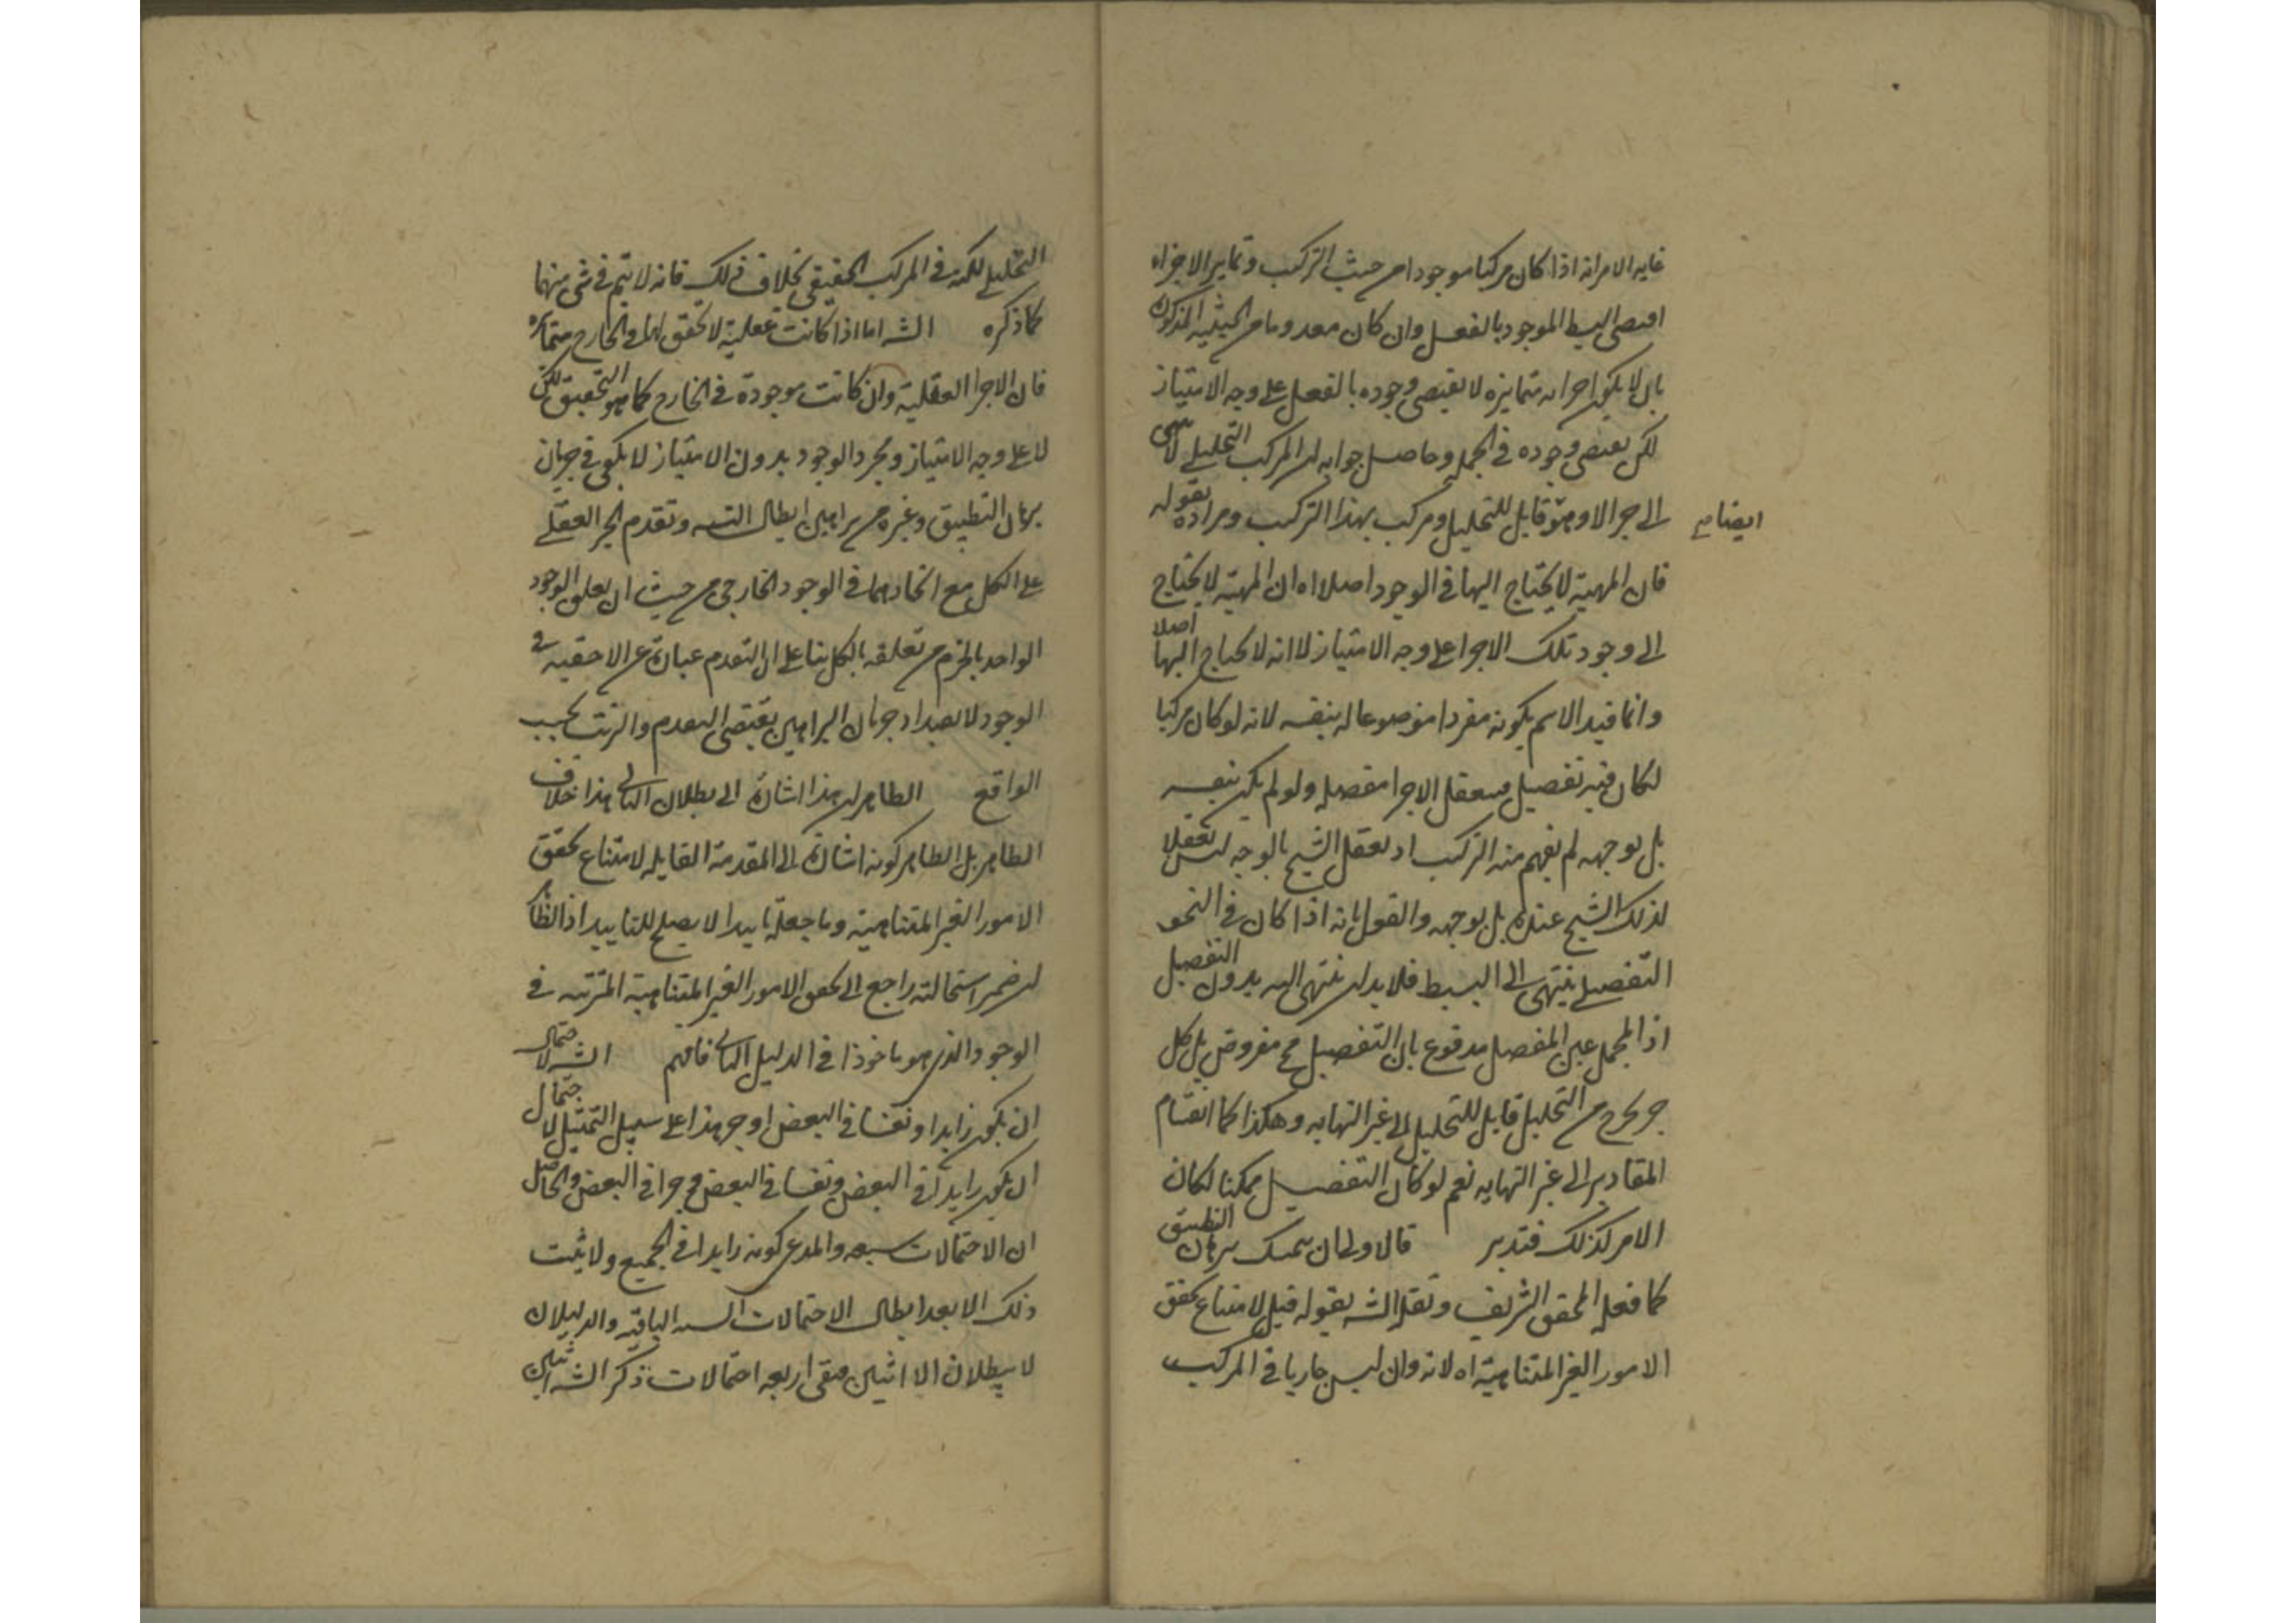 غايه الامر انه اذا كان مركبا موجودا من حيث التركيب وتمايز الاجزاء
اقتضى البسيط الموجود بالفعل وان كان معدوما من الحيثيه المذكوره
بان لا يكون اجزاءه متمايزه لا يقتضى وجوده بالفعل على وجه الامتياز
لكن يقتضى وجوده فى الجمله وحاصل جوابه ان المركب التحليلى لا ينتهى
الى جزء الا وهو قابل للتحليل ومركب بهذا التركيب ومراده بقوله
ايضا
فان المهية لا يحتاج اليها فى الوجود اصلا اه ان المهية لا يحتاج
الى وجود تلك الاجزا على وجه الامتياز لا انه لا يحتاج اليها اصلا
وانما قيد الاسم بكونه مفردا موضوعا له بنفسه لانه لو كان مركبا
لكان فيه تفصيل فيتعقل الاجزا مفصله ولو لم يكن بنفسه
بل بوجهه لم يفهم منه التركيب اذ تعقل الشيء بالوجه ليس تعقلا
لذلك الشيء عنده بل بوجهه والقول بانه اذا كان فى النحو
التفصيلى ينتهى الى البسيط فلا بد ان ينتهى اليه بدون التفصيل
اذ المجمل عين المفصل مدفوع بان التفصيل مح مفروض بل كل
جزء يخرج من التحليل قابل للتحليل الى غير النهايه وهكذا كما انقسام
المقادير الى غير النهايه نعم لو كان التفصيل ممكنا لكان
الامر كذلك فتدبر قال ولك ان تتمسك ببرهان التطبيق
كما فعله المحقق الشريف ونقله الشه بقوله قيل لامتناع تحقق
الامور الغير المتناهية اه لانه وان ليس جاريا فى المركب
التحليلى لكنه فى المركب الحقيقى بخلاف ذلك فانه لا يتم فى شى منهما
كما ذكره الشه اما اذا كانت عقلية لا تحقق لها فى الخارج متمايزه
فان الاجزا العقلية وان كانت موجودة فى الخارج كما هو التحقيق لكن
لا على وجه الامتياز ومجرد الوجود بدون الامتياز لا يكفى فى جريان
برهان التطبيق وغيره من براهين ابطال التسه وتقدم الجزء العقلى
على الكل مع اتحادهما فى الوجود الخارجى من حيث ان تعلق الوجود
الواحد بالجزء من تعلقه بالكل بناء على ان التقدم عبارة عن الاحقيه فى
الوجود لا يفيد اذ جريان البراهين يقتضى التقدم والترتب بحسب
الواقع الظاهر ان هذا اشارة الى بطلان التالى هذا خلاف
الظاهر بل الظاهر كونه اشارة الى المقدمة القايله لامتناع تحقق
الامور الغير المتناهية وما جعله تاييدا لا يصلح للتاييد اذ الظا
ان ضمير استحالته راجع الى تحقق الامور الغير المتناهية المترتبه فى
الوجود الذى هو ماخوذا فى الدليل الثانى فافهم الشه لاحتمال
ان يكون زايدا ونفسا فى البعض او جز هذا على سبيل التمثيل لاحتمال
ان يكون زايدا فى البعض ونفسا فى البعض وجزا فى البعض والحاصل
ان الاحتمالات سبعه والمدعى كونه زايدا فى الجميع ولا يثبت
ذلك الا بعد ابطال الاحتمالات السته الباقيه والدليلان
لا يبطلان الا اثنين فبقى اربعه احتمالات ذكر الشه اثنين